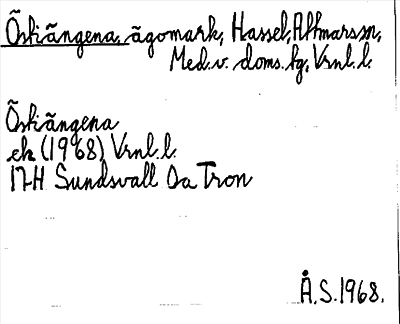 Öskiängena, ägomark, Hassel, Attmars sn,
Med.v. doms.hg, Vrnl. l.
Öskiängena
ek (1968) Vrnl. l.
17H Sundsvall Oa Tron
Å.S. 1968.